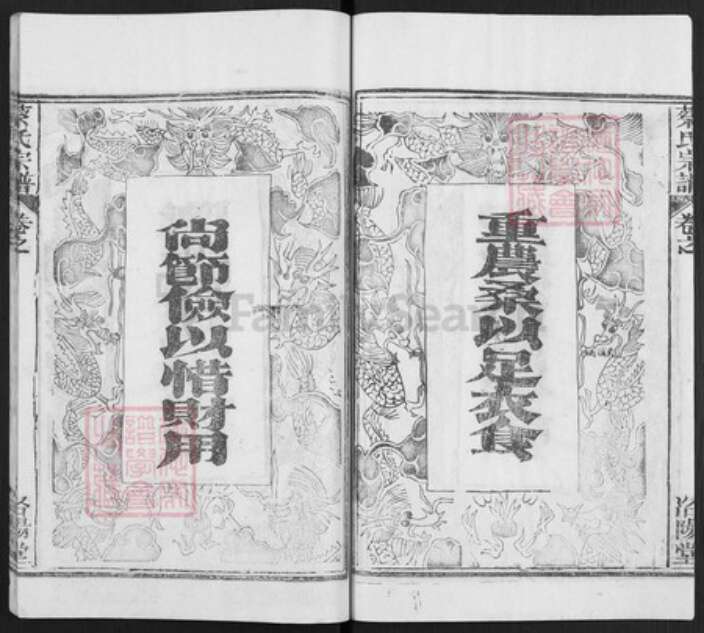 蔡氏宗譜
卷之
洛陽堂
重農桑以足衣食
尚節儉以惜財用
蔡氏宗譜
卷之
洛陽堂
FamilySearch